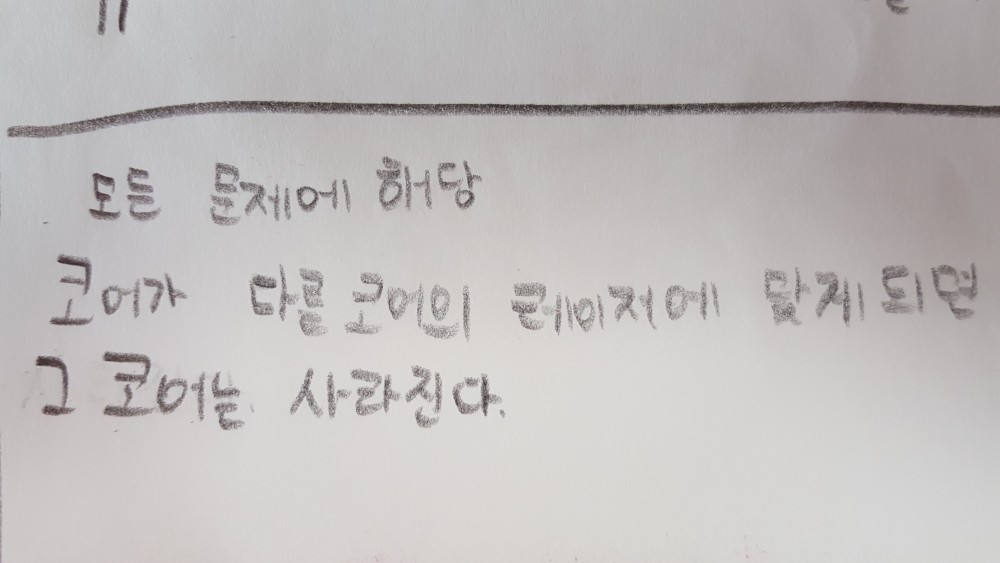 모든 문제에 해당
코어가 다른 코어의 레이저에 맞게 되면
그 코어는 사라진다.